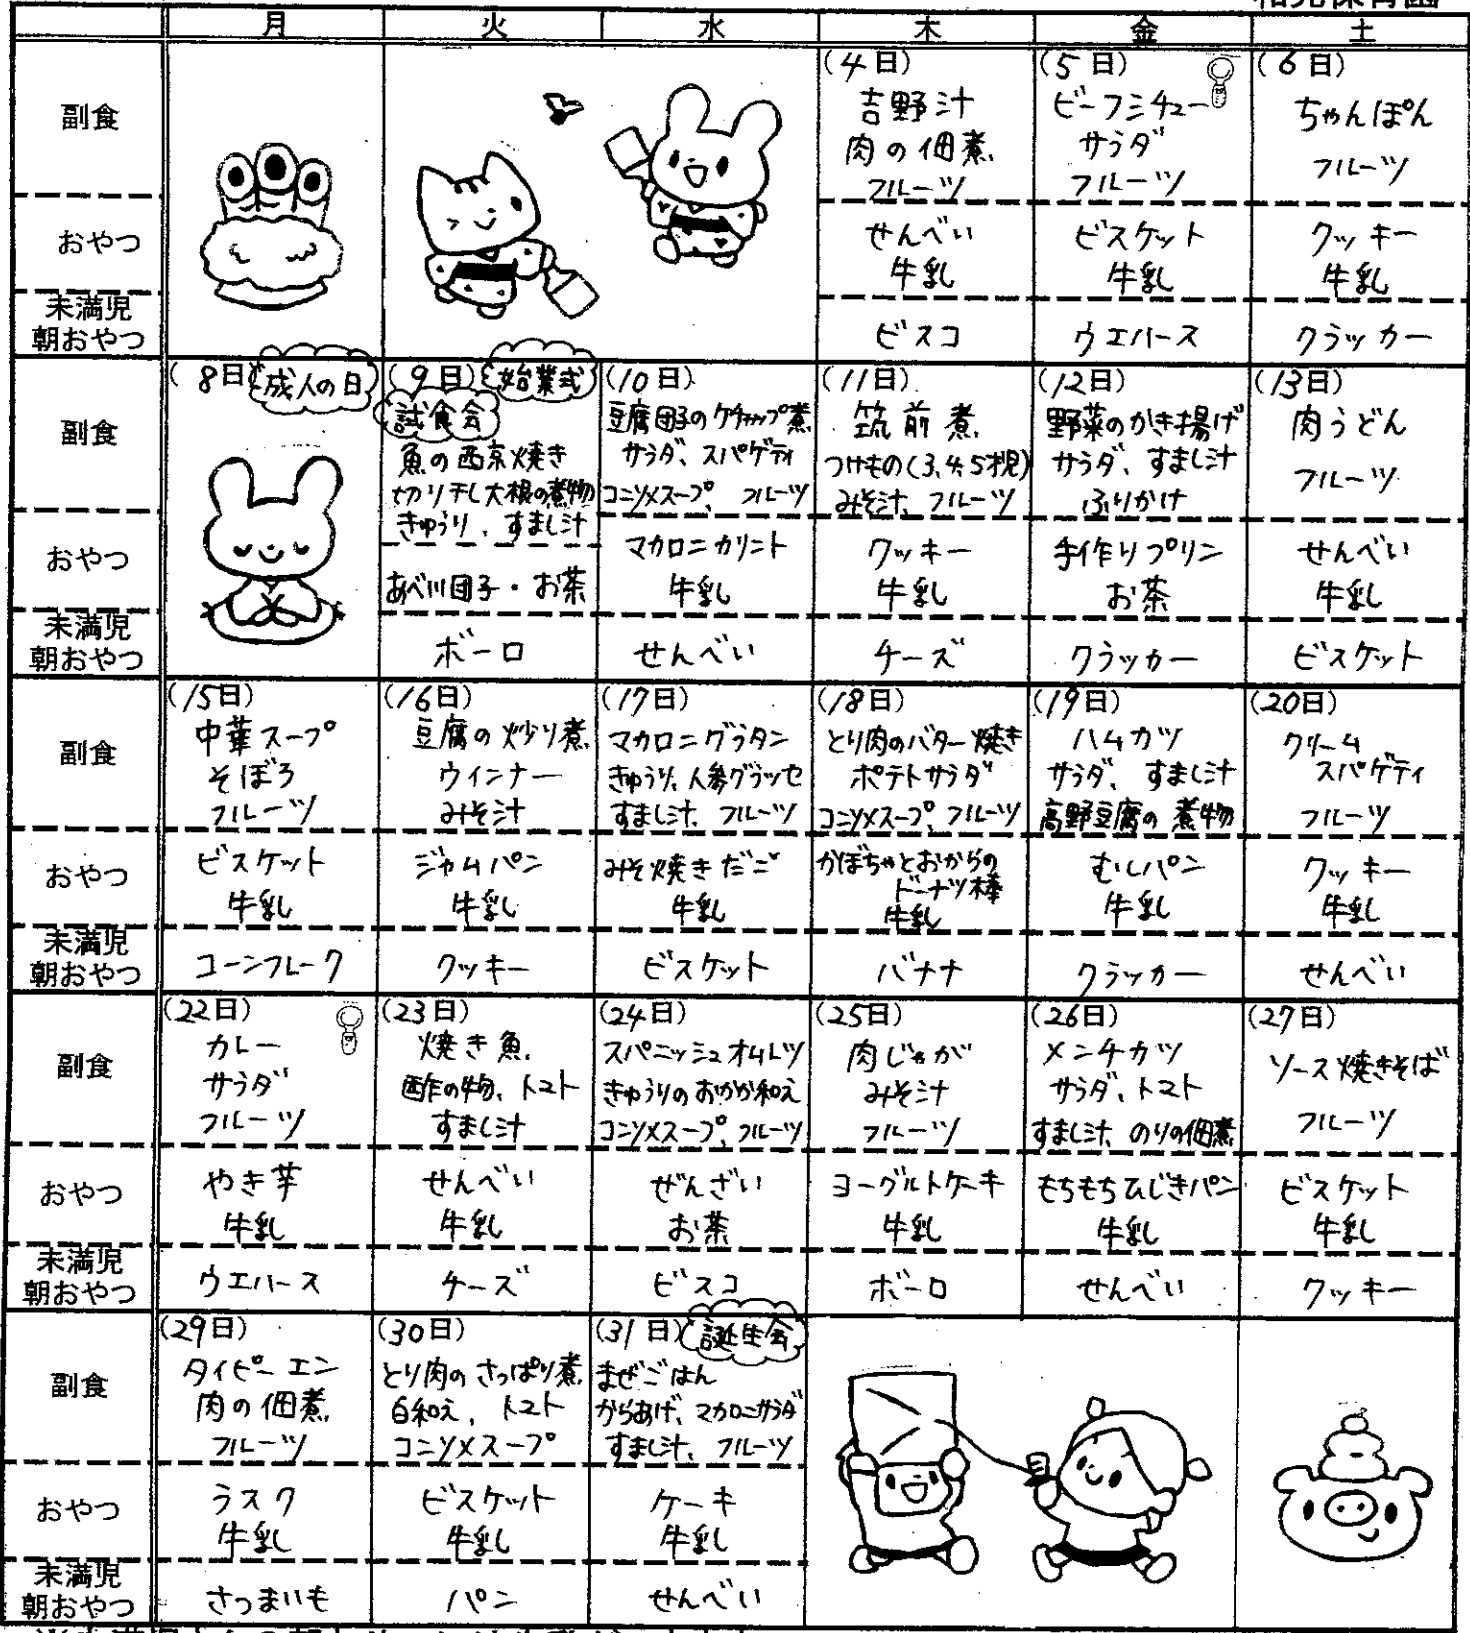 月 火 水 木 金 土
副食
(4日)
吉野汁
肉の佃煮
フルーツ
(5日)
ビーフシチュー
サラダ
フルーツ
(6日)
ちゃんぽん
フルーツ
おやつ
せんべい
牛乳
ビスケット
牛乳
クッキー
牛乳
未満児
朝おやつ
ビスコ
ウエハース
クラッカー
副食
(8日)
成人の日
(9日)
始業式
試食会
魚の西京焼き
切り干し大根の煮物
きゅうり、すまし汁
(10日)
豆腐団子のケチャップ煮
サラダ、スパゲティ
コンソメスープ、フルーツ
(11日)
筑前煮
つけもの(3,4,5才児)
みそ汁、フルーツ
(12日)
野菜のかき揚げ
サラダ、すまし汁
ふりかけ
(13日)
肉うどん
フルーツ
おやつ
あべ川団子・お茶
マカロニカリント
牛乳
クッキー
牛乳
手作りプリン
お茶
せんべい
牛乳
未満児
朝おやつ
ボーロ
せんべい
チーズ
クラッカー
ビスケット
副食
(15日)
中華スープ
そぼろ
フルーツ
(16日)
豆腐の炒り煮
ウィンナー
みそ汁
(17日)
マカロニグラタン
きゅうり、人参グラッセ
すまし汁、フルーツ
(18日)
とり肉のバター焼き
ポテトサラダ
コンソメスープ、フルーツ
(19日)
ハムカツ
サラダ、すまし汁
高野豆腐の煮物
(20日)
クリーム
スパゲティ
フルーツ
おやつ
ビスケット
牛乳
ジャムパン
牛乳
みそ焼きだご
牛乳
かぼちゃとおからの
ドーナツ棒
牛乳
むしパン
牛乳
クッキー
牛乳
未満児
朝おやつ
コーンフレーク
クッキー
ビスケット
バナナ
クラッカー
せんべい
副食
(22日)
カレー
サラダ
フルーツ
(23日)
焼き魚
酢の物、トマト
すまし汁
(24日)
スパニッシュオムレツ
きゅうりのおかか和え
コンソメスープ、フルーツ
(25日)
肉じゃが
みそ汁
フルーツ
(26日)
メンチカツ
サラダ、トマト
すまし汁、のりの佃煮
(27日)
ソース焼きそば
フルーツ
おやつ
やき芋
牛乳
せんべい
牛乳
ぜんざい
お茶
ヨーグルトケーキ
牛乳
もちもちひじきパン
牛乳
ビスケット
牛乳
未満児
朝おやつ
ウエハース
チーズ
ビスコ
ボーロ
せんべい
クッキー
副食
(29日)
タイピーエン
肉の佃煮
フルーツ
(30日)
とり肉のさっぱり煮
白和え、トマト
コンソメスープ
(31日)
誕生会
まぜごはん
からあげ、マカロニサラダ
すまし汁、フルーツ
おやつ
ラスク
牛乳
ビスケット
牛乳
ケーキ
牛乳
未満児
朝おやつ
さつまいも
パン
せんべい